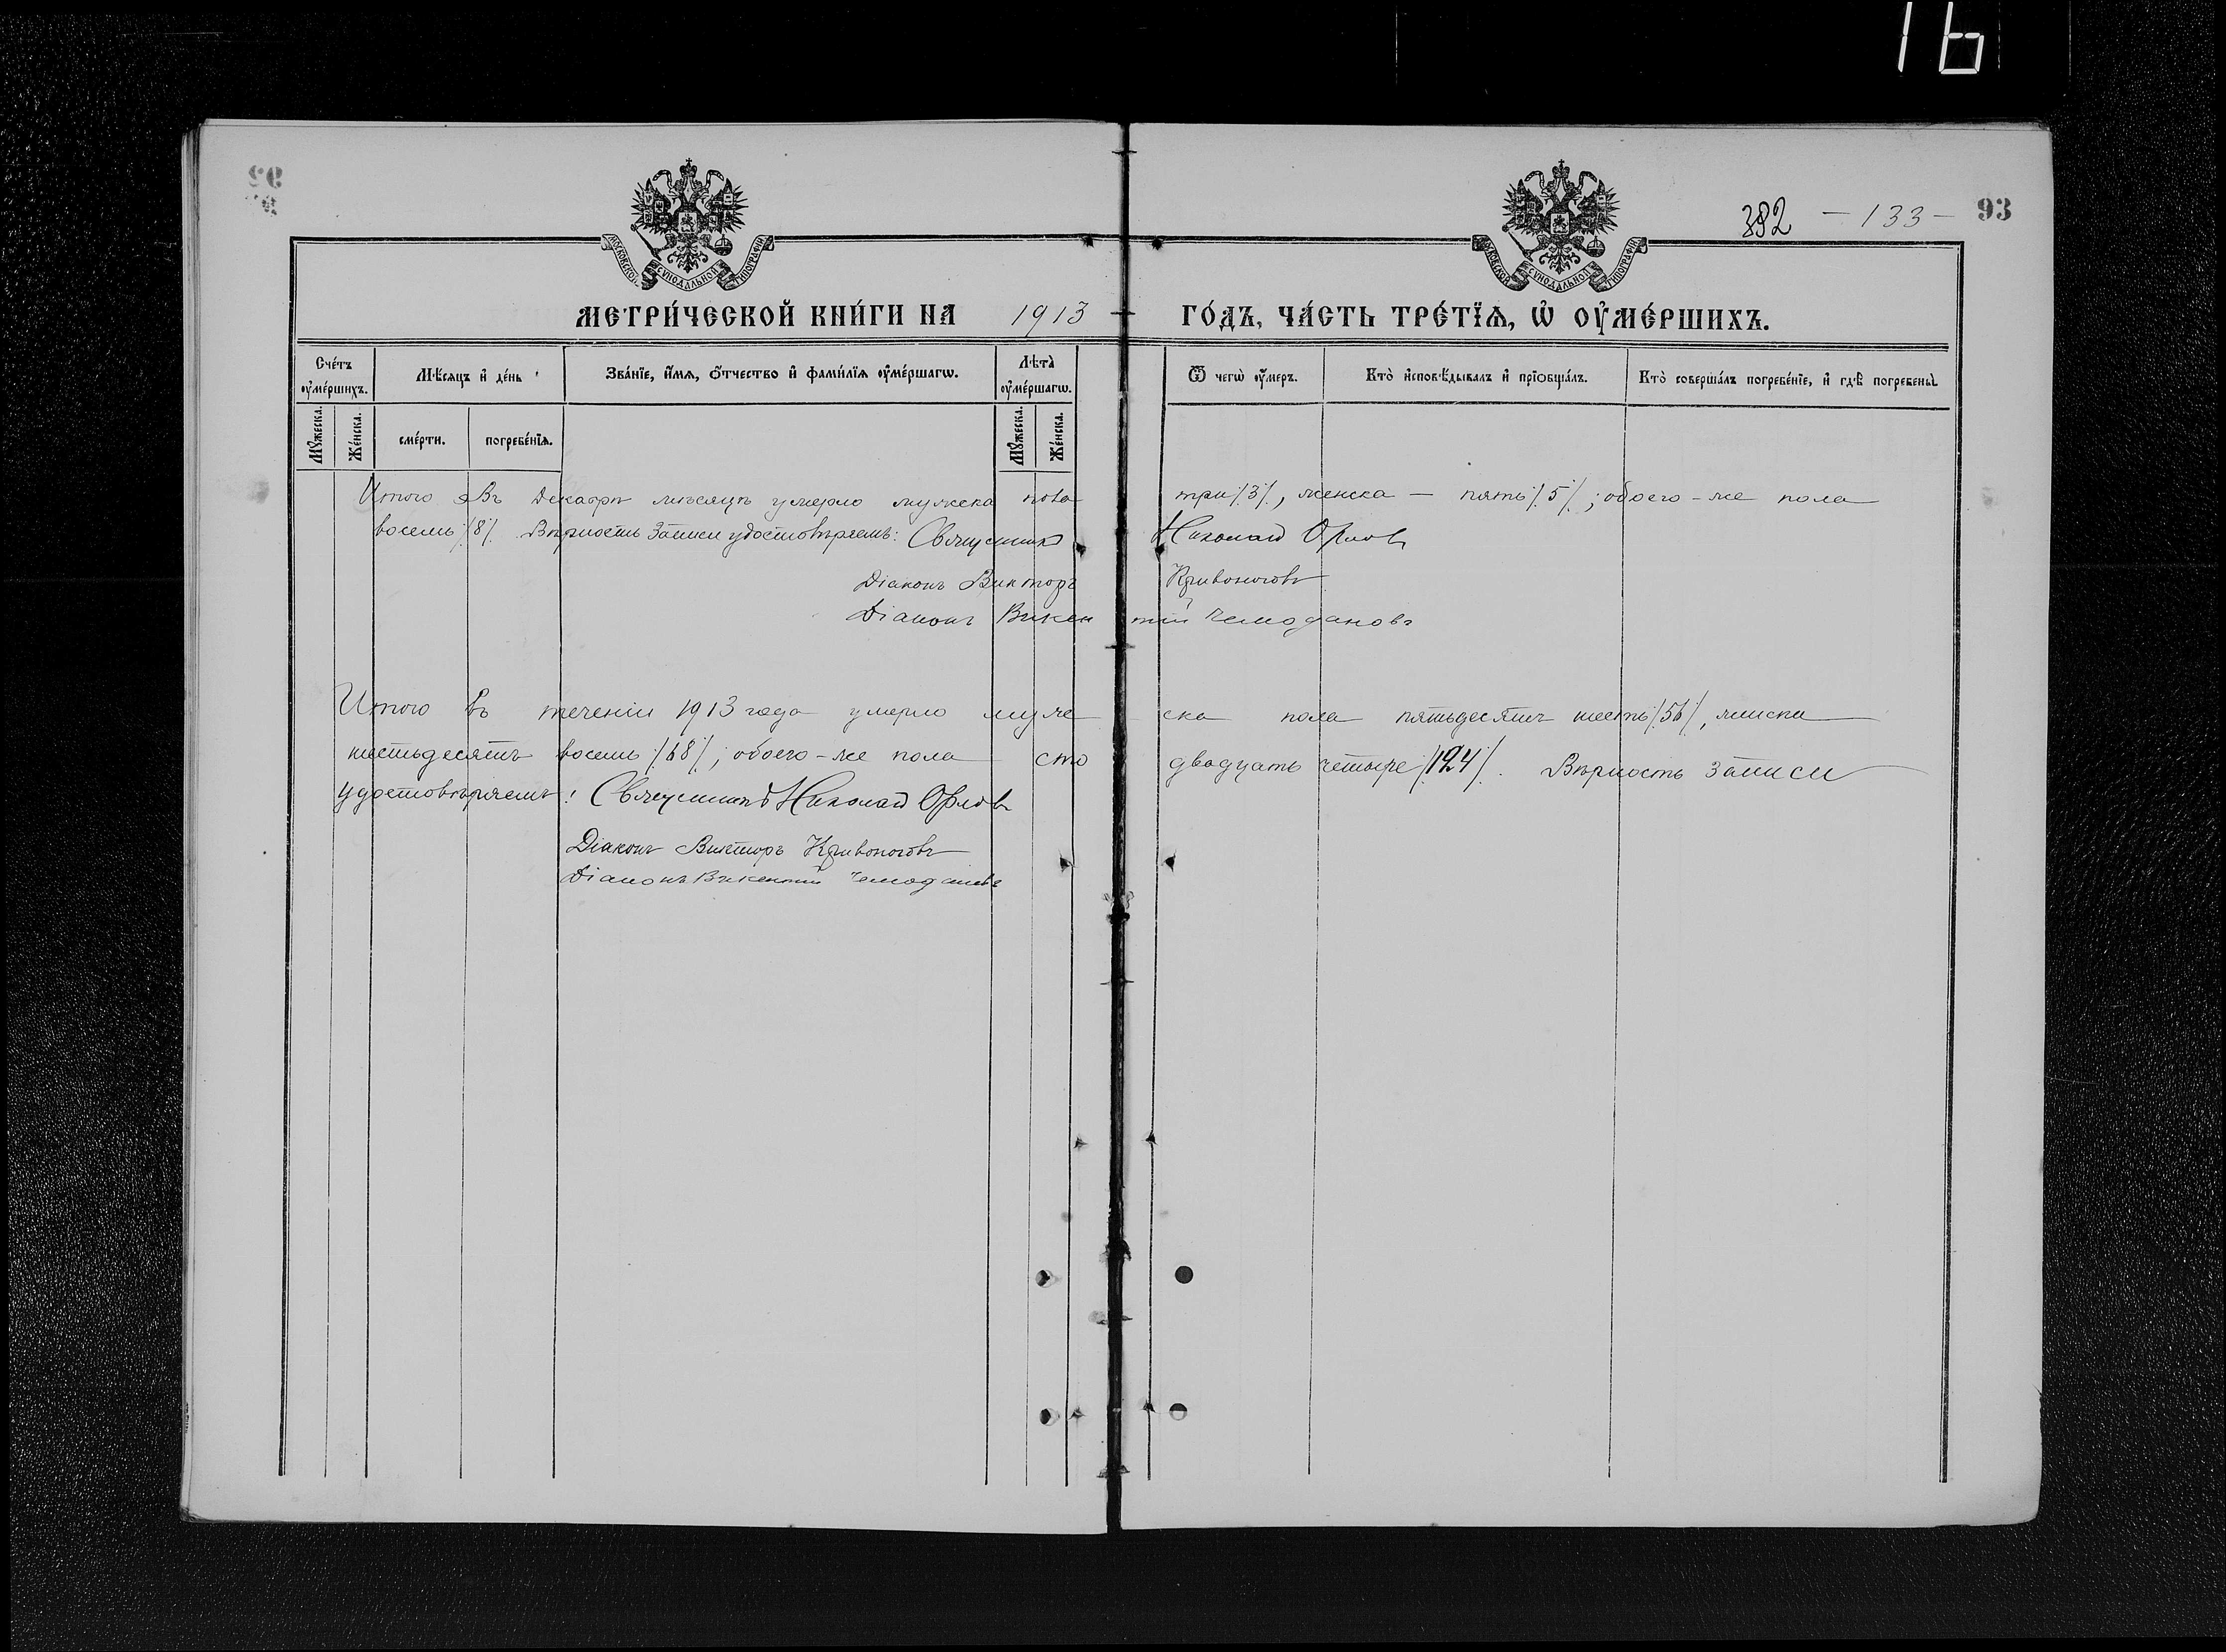 16
382 — 133 — 93
МОСКОВСКОЙ СУНОДАЛЬНОЙ ТИПОГРАФІИ
МОСКОВСКОЙ СУНОДАЛЬНОЙ ТИПОГРАФІИ
МЕТРИ́ЧЕСКОЙ КНИ́ГИ НА 1913 ГО́ДЪ, ЧА́СТЬ ТРЕ́ТЇѦ, Ѡ҆ ОУ҆МЕ́РШИХЪ.
Сче́тъ оу҆ме́ршихъ.
Мѣ́сяцъ и҆ де́нь
Зва́нїе, и҆́мѧ, ѻ҆́тчество и҆ фами́лїѧ оу҆ме́ршагѡ.
Лѣ́та оу҆ме́ршагѡ.
Ѿ чегѡ̀ оу҆́меръ.
Кто̀ и҆сповѣ́дывалъ и҆ прїѡбща́лъ.
Кто̀ соверша́лъ погребе́нїе, и҆ гдѣ̀ погребены̀.
Мꙋ́жеска.
Же́нска.
сме́рти.
погребе́нїѧ.
Мꙋ́жеска.
Же́нска.
Итого въ Декабрѣ мѣсяцѣ умерло мужеска пола три /3/, женска — пять /5/; обоего-же пола
восемь /8/. Вѣрность записи удостовѣряемъ: Священникъ Николай Орловъ
Діаконъ Викторъ Кривоноговъ
Діаконъ Викентій Чемодановъ
Итого въ теченіи 1913 года умерло мужеска пола пятьдесятъ шесть /56/, женска
шестьдесятъ восемь /68/; обоего-же пола сто двадцать четыре /124/. Вѣрность записи
удостовѣряемъ: Священникъ Николай Орловъ
Діаконъ Викторъ Кривоноговъ
Діаконъ Викентій Чемодановъ